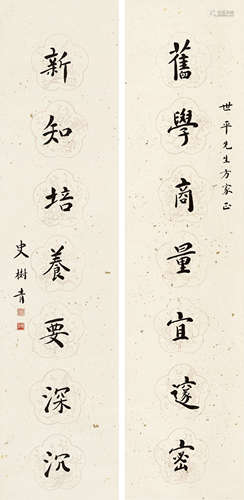 世平先生方家正
舊學商量宜邃密
新知培養要深沉
史樹青